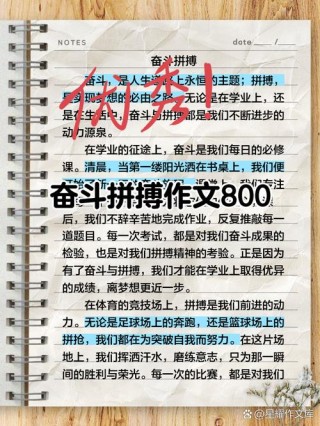 NOTES
date
奋斗拼搏
奋斗，是人生道路上永恒的主题；拼搏，
是实现梦想的必由之路。无论是在学业上，还
是在生活中，奋斗与拼搏都是我们不断进步的
动力源泉。
优秀！
在学业的征途上，奋斗是我们每日的必修
课。清晨，当第一缕阳光洒在书桌上，我们便
奋斗拼搏作文800
后，我们不辞辛苦地完成作业，反复推敲每一
道题目。每一次考试，都是对我们奋斗成果的
检验，也是对我们拼搏精神的考验。正是因为
有了奋斗与拼搏，我们才能在学业上取得优异
的成绩，离梦想更近一步。
在体育的竞技场上，拼搏是我们前进的动
力。无论是足球场上的奔跑，还是篮球场上的
拼抢，我们都在为突破自我而努力。在这片场
地上，我们挥洒汗水，磨练意志，只为那一瞬
间的胜利与荣光。每一次的比赛，都是对我们
@星耀作文库